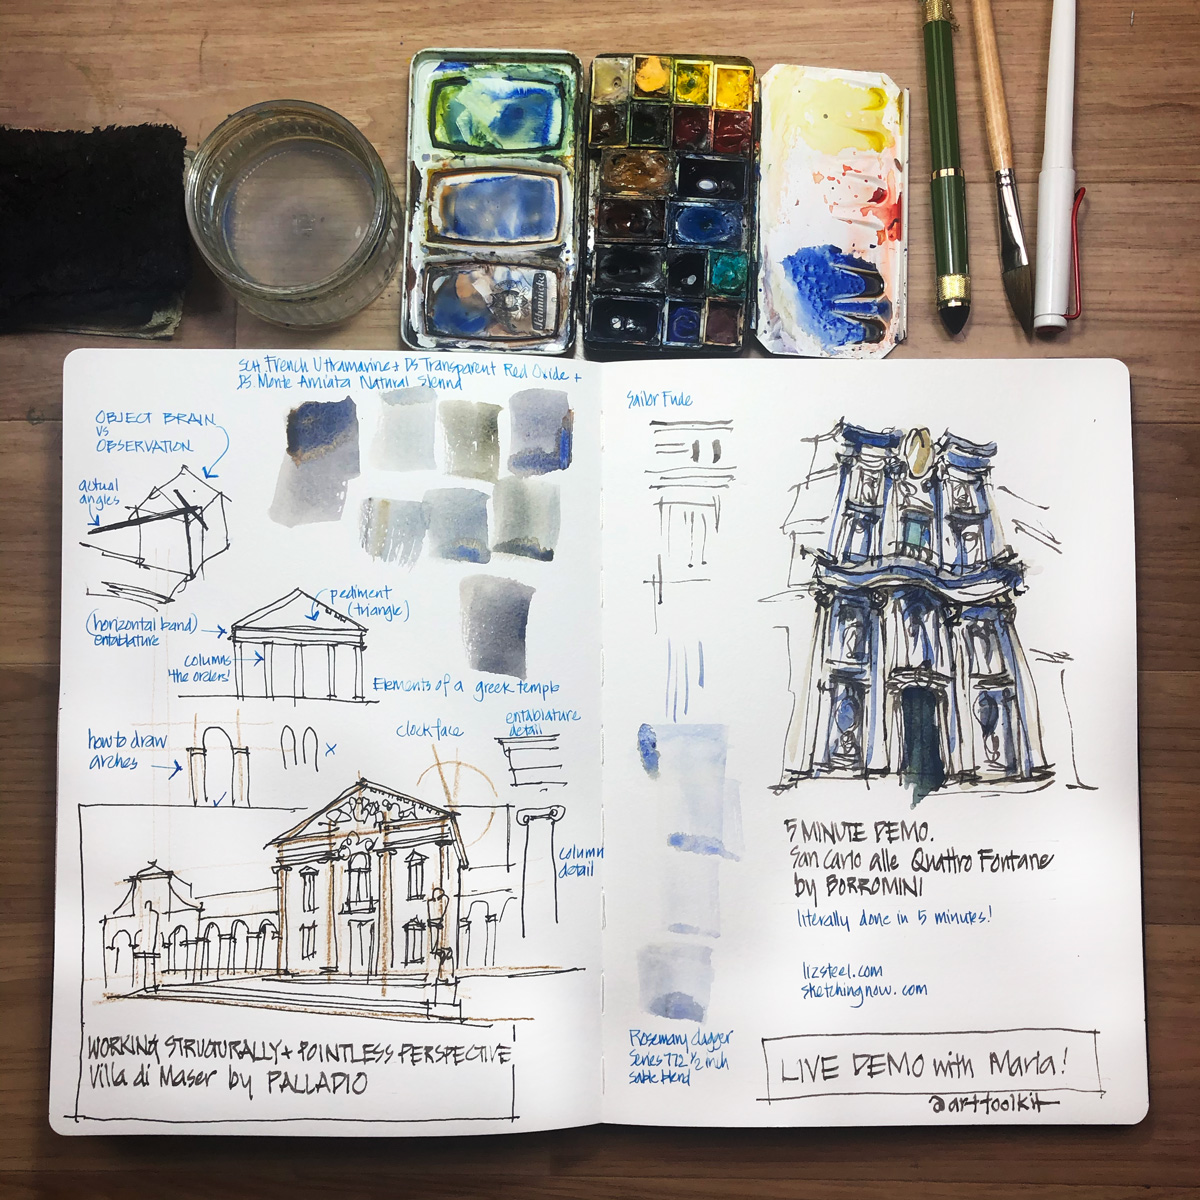 SCH French Ultramarine + DS Transparent Red Oxide +
DS. Monte Amiata Natural Sienna
OBJECT BRAIN
VS
OBSERVATION
actual
angles
pediment
(triangle)
(horizontal band)
entablature
columns
'the orders'
Elements of a greek temple
how to draw
arches
clock face
entablature
detail
column
detail
WORKING STRUCTURALLY + POINTLESS PERSPECTIVE
Villa di Maser by PALLADIO
Schmincke
Sailor Fude
5 MINUTE DEMO.
San Carlo alle Quattro Fontane
by BORROMINI
literally done in 5 minutes!
lizsteel.com
sketchingnow.com
Rosemary dagger
Series 772 1/2 inch
sable blend
LIVE DEMO with Maria!
@arttoolkit